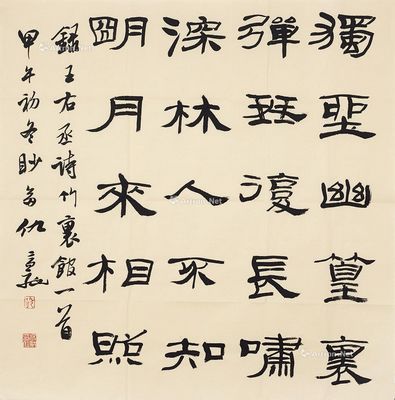 獨坐幽篁裏
彈琴復長嘯
深林人不知
明月來相照
錄王右丞詩竹裏館一首
甲午初冬